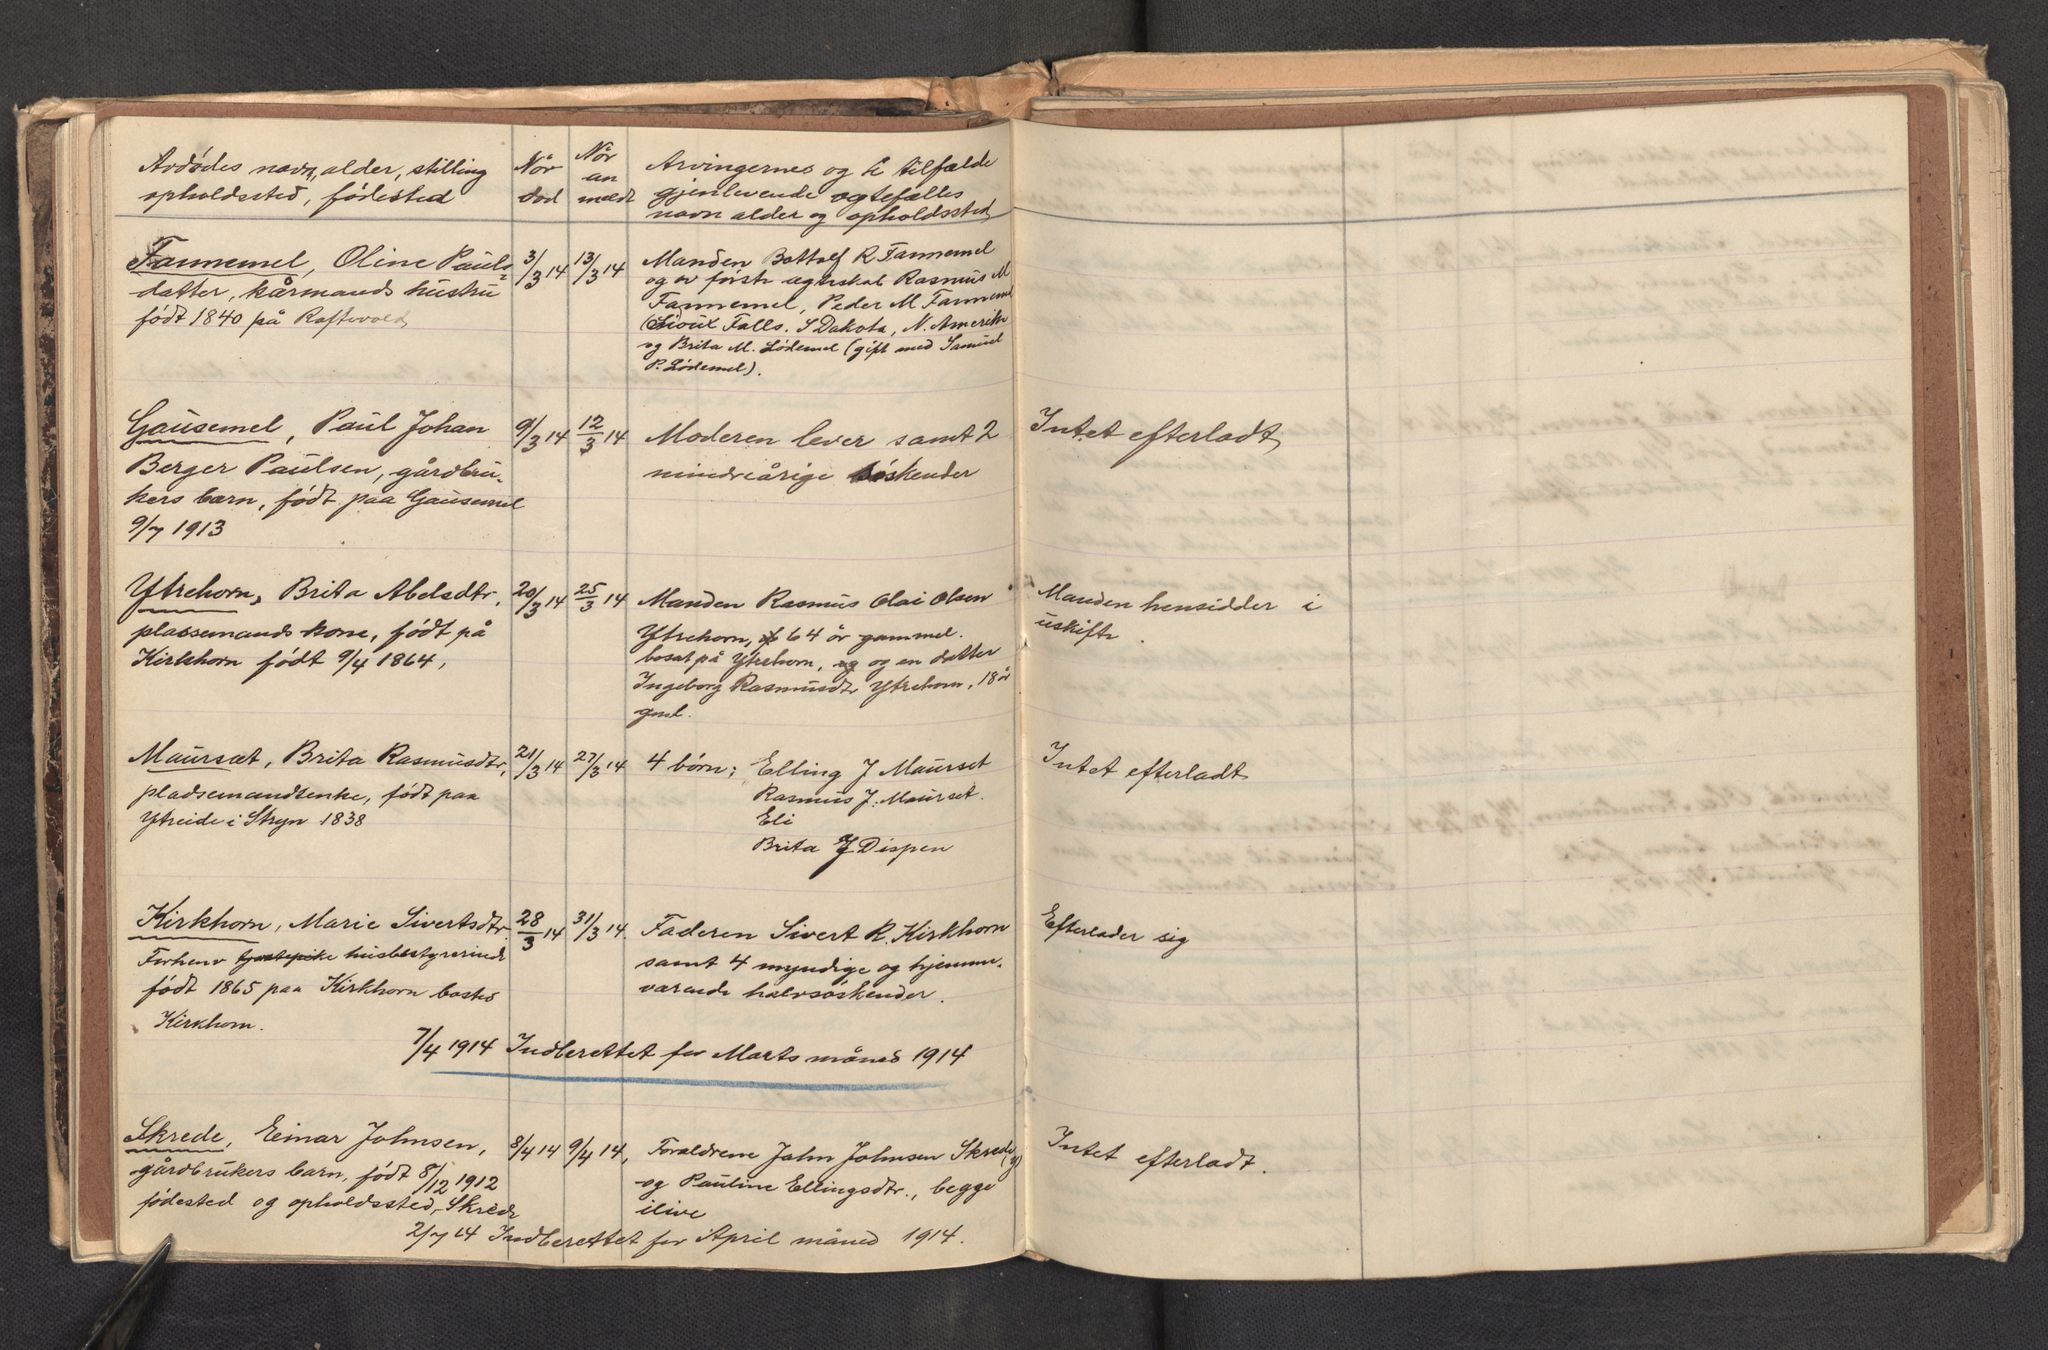 Avdødes navn, alder, stilling
opholdssted, fødested
Når
død
Når
an
meldt
Arvingernes og i tilfælde
gjenlevende egtefælles
navn alder og opholdssted
Fannemel, Oline Pauls-
datter, kårmands hustru
født 1840 på Raftevold
3/3 14
13/3 14
Manden Bottolf R Fannemel
og av første egteskab Rasmus M
Fannemel, Peder M. Fannemel
(Sioux Falls. S Dakota, N. Amerika
og Brita M. Lødemel (gift med Samuel
P. Lødemel).
Gausemel, Paul Johan
Berger Paulsen, gårdbru-
kers barn, født paa Gausemel
9/7 1913
9/3 14
12/3 14
Moderen lever samt 2
mindreårige søskender
Intet efterladt
Ytrehorn, Brita Abelsdtr,
plassemands kone, født på
Kirkhorn født 9/4 1864,
20/3 14
25/3 14
Manden Rasmus Olai Olsen
Ytrehorn, 64 år gammel.
bosat på Ytrehorn, og og en datter
Ingeborg Rasmusdtr Ytrehorn, 18 år
gml.
Manden hensidder i
uskifte.
Maurset, Brita Rasmusdtr,
pladsemandsenke, født paa
Ytreide i Stryn 1838
21/3 14
27/3 14
4 børn; Elling J Maurset
Rasmus J. Maurset.
Eli
Brita J Dispen
Intet efterladt
Kirkhorn, Marie Sivertsdtr.
Forhenv husbestyrerinde
født 1865 paa Kirkhorn bosted
Kirkhorn.
28/3 14
31/3 14.
Faderen Sivert R. Kirkhorn
samt 4 myndige og hjemme-
værende halvsøskender.
Efterlader sig
7/4 1914 Indberettet for Marts måned 1914
Skrede, Einar Johnsen,
gårdbrukers barn, født 8/12 1912
fødested og opholdssted, Skrede
8/4 14
9/4 14,
Forældrene John Johnsen Skrede (y)
og Pauline Ellingsdtr., begge
ilive
Intet efterladt.
2/7 14 Indberettet for April måned 1914.